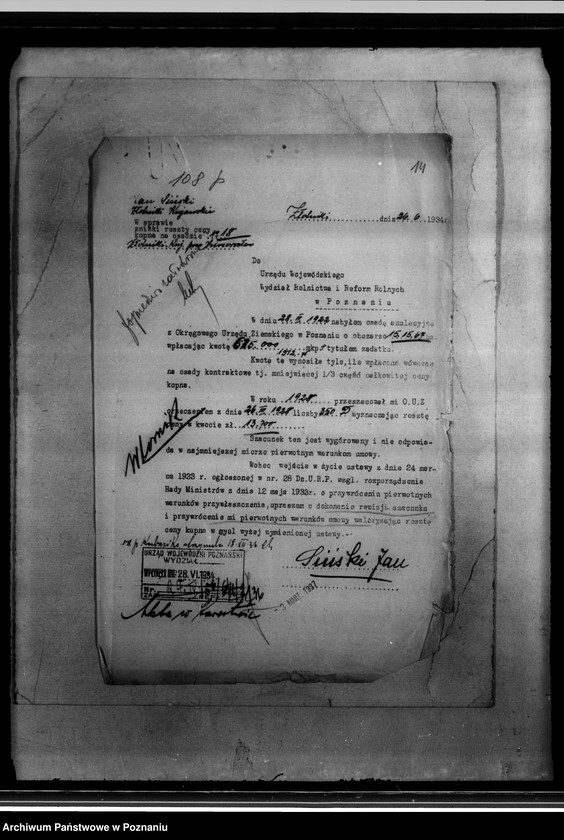 108 p
14
Jan Siński
Złotniki Kujawskie
W sprawie
zniżki reszty ceny
kupna na osadzie nr 18
Złotniki Kuj. pow. Inowrocław
Złotniki dnia 24. 6. 1934 r.
Do
Urzędu Wojewódzkiego
Wydział Rolnictwa i Reform Rolnych
w Poznaniu
W dniu 1922 nabyłem osadę analecyjną
z Okręgowego Urzędu Ziemskiego w Poznaniu o obszarze 15.15.67 ha
wpłacając kwotę mkp tytułem zadatku.
Kwotę ta wynosiła tyle, ile wpłacano wówczas
na osady kontraktowe tj. mniejwięcej 1/3 część całkowitej ceny
kupna.
W roku 1928 przeszacował mi O.U.Z
orzeczeniem z dnia 1928 liczby wyznaczając resztę
ceny w kwocie zł. 13.700
Szacunek ten jest wygórowany i nie odpowia-
da w najmniejszej mierze pierwotnym warunkom umowy.
Wobec wejście w życie ustawy z dnia 24 mar-
ca 1933 r. ogłoszonej w nr. 28 Dz.U.R.P. wzgl. rozporządzenia
Rady Ministrów z dnia 12 maja 1933r. o przywrócenie pierwotnych
warunków przywłaszczenie, upraszam o dokonanie rewizji szacunku
i przywrócenie mi pierwotnych warunków umowy waloryzując resztę
ceny kupna w myśl wyżej wymienionej ustawy.-
URZĄD WOJEWÓDZKI POZNAŃSKI
WYDZIAŁ
WPŁYNĘŁO DNIA 28. VI. 1934
Siński Jan
Archiwum Państwowe w Poznaniu